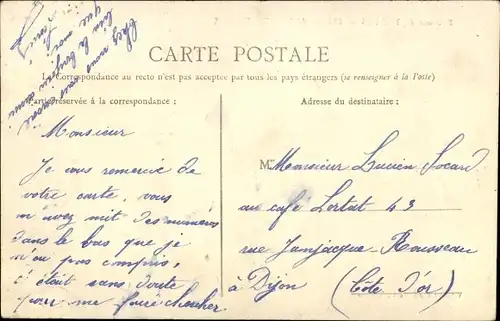 CARTE POSTALE
La Correspondance au recto n'est pas acceptée par tous les pays étrangers (se renseigner à la Poste)
Partie réservée à la correspondance :
Adresse du destinataire :
Monsieur
Je vous remercie de
votre carte, vous
m'avez mit des numéros
dans le bas que je
n'ai pas compris,
c'était sans doute
pour me faire chercher
M
Monsieur Lucien Socard
au café Lortat 43
rue Janjacque-Rousseau
à Dijon (Côte d'or)
chez nous
bien le bonjour
que moi